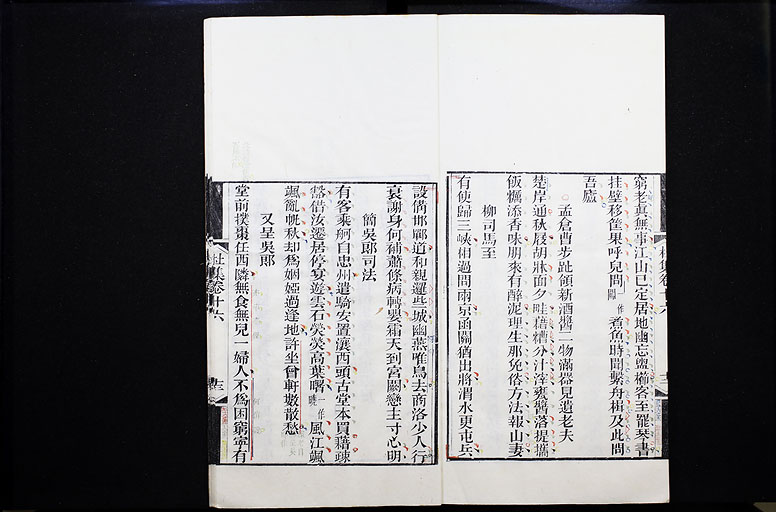 窮老真無事江山已定居地幽忘盥櫛客至罷琴書
挂壁移筐果呼兒問一作間煮魚時聞繫舟楫及此問
吾廬
孟倉曹步趾領新酒醬二物滿器見遺老夫
楚岸通秋屐胡牀面夕畦藉糟分汁滓甕醬落提攜
飯糲添香味朋來有醉泥理生那免俗方法報山妻
柳司馬至
有使歸三峽相過問兩京函關猶出將渭水更屯兵
設備邯鄲道和親邏些城幽燕唯鳥去商洛少人行
衰謝身何補蕭條病轉嬰霜天到宮闕戀主寸心明
簡吳郎司法
有客乘舸自忠州遣騎安置瀼西頭古堂本買藉疎
豁借汝遷居停宴遊雲石熒熒高葉曙一作曉風江颯
颯亂帆秋却為姻婭過逢地許坐曾軒數散愁
又呈吳郎
堂前撲棗任西隣無食無兒一婦人不為困窮寧有
集卷十六